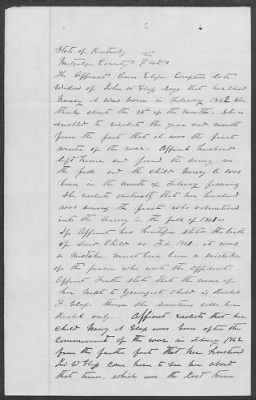 State of Kentucky
Metcalfe County
The Affiant Ann Eliza late
Widow of John W says that her child
Nancy A was born in February 1862 She
thinks about the of the month. She is
enabled to recollect the year and month
from the fact that it was the first
winter of the war. Affiants husband
left home and joined the army in
the fall and the child Nancy A was
born in the month of February following
She recollects distinctly that her husband
was among the first who volunteered
into the Army in the fall of 1861
If Affiant has heretofore stated the birth
of said Child as Feb 1861 it was
a mistake must have been a mistake
of the person who wrote the affidavit
Affiant further states that the name of
her next to youngest child is
F. though she sometimes calls her
only. Affiant recollects that her
child Nancy A was born after the
commencement of the war in February 1862
from the further fact that her husband
Jno W came home to see her about
that time, which was the last time